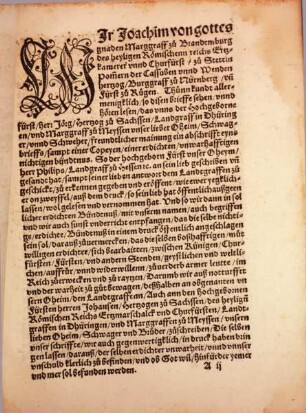 WJr Joachim von gottes
gnaden Marggraff zů Brandenburg
des heyligen Römischenn reichs Ertz-
kamerer vnnd Churfürst / zů Stettin
Pomern der Cassuben vnnd Wenden
hertzog / Burggraff zů Nürenberg / vñ
Fürst zů Rügen. Thůnn kundt aller-
menigklich / so disen brieffe sehen vnnd
hören lesen / das vnns der Hochgeborne
fürst / herr Jörg / hertzog zů Sachssen / Landtgraff in Dhüringen
vnd Marggraff zů Meyssen vnser lieber Oheim / Schwag-
er / vnnd Schweher / freundtlicher mainung ein abschrifft eyns
brieffs / sampt einer Copeyen / einer erdichten / vnwarhafftigen
nichtigen bündtnus. So der hochgeborn Fürst vnser Oheim /
herr Philips / Landtgraff zů Hessenn ꝛc. an sein lieb geschriben vñ
gesandt hat / sampt seiner lieb dē antwort dem Landtgraffen zů
geschickt / zů erkennen gegeben vnd eröffent / wie ewer yegklich-
er on zweyffel / auß dem druck / so sein lieb hat öffentlich außgeen
lassen / wol gelesen vnd vernommen hat. Vnd so wir dann in sol
licher erdichten Bündtnuß / mit vnserm namen / auch angriffen
vnd wir auch sunst vnderricht entpfangen / das die selbe nichti-
ge / erdichte / Bündtnuß in einem druck öffentlich angeschlagen
sein sol / darauß zů uermercken / das die selben boßhafftigen / můt
willigen erdichter / sich bearbaiten / zwischen Künigen / Chur-
fürsten / Fürsten / vnd andern Stenden / geystlichen vnd weltli-
chen / auffrůr / vnnd widerwillenn / zů uerderb armer leute / im
Reich zů erwecken vnd zů raytzen. Darumb wir auß notturfft
vnd der warheit zů gůt bewegen / deßhalben an obgenanten vn
sern Oheim / den Landtgraffenn / Auch ann den hochgebornen
Fürsten herren Johansen / Hertzogen zů Sachssen / des heyligē
Römischen Reichs Ertzmarschalck vnd Churfürsten / Landt-
graffen in Dhüringen / vnd Marggraffen zů Meyssen / vnsern
lieben Oheim / Schwager vnd Brůder zů schreiben / Die selben
vnser schriffte / wie auch gegenwertigklich / in druck haben brin
gen lassen / darauß / der selben erdichter vnwarheit / vnnd vnser
vnschuldt klerlich zů befinden / vnd ob Got wil / hinfürder yemer
vnd mer sol befunden werden.
A ij